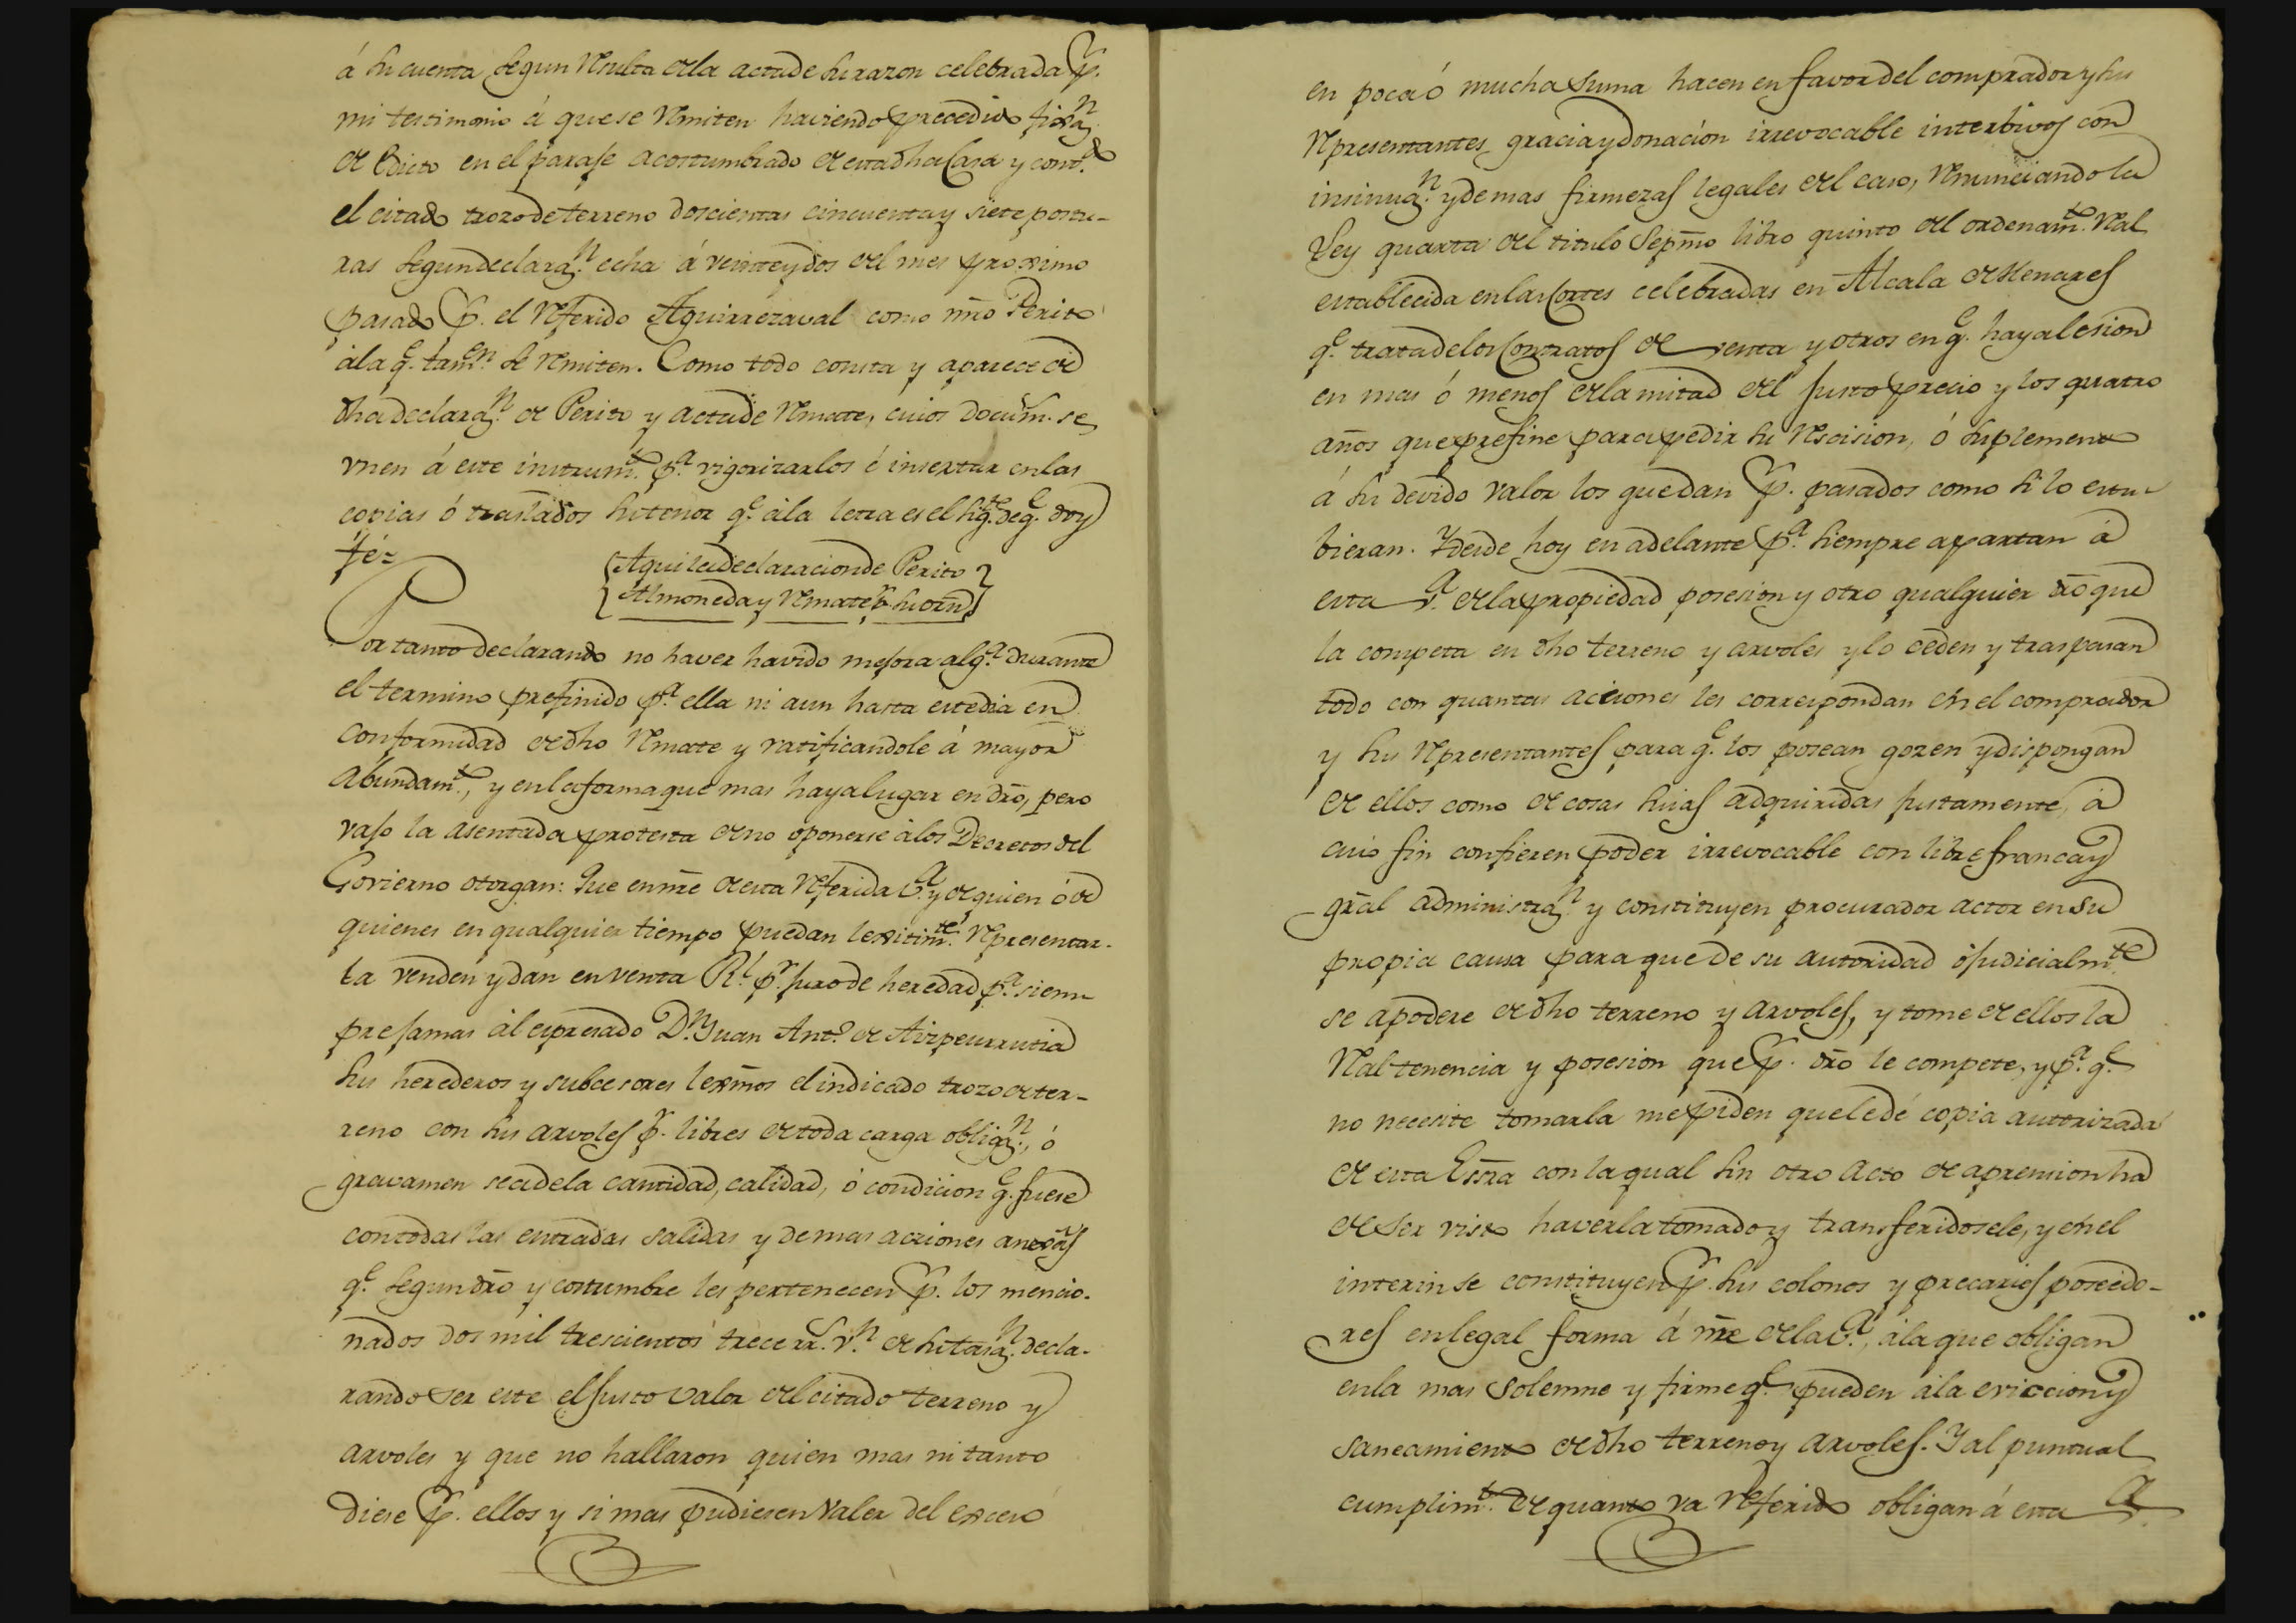 á su cuenta segun resulta de la acta de su razon celebrada p.
mi testimonio á que se remiten haviendo precedido fixaz.n
de Edicto en el paraje acostumbrado de esta dha Casa y cont.do
el citado trozo de terreno doscientas cincuenta y siete postu-
ras segun declaraz.n echa á veinte y dos del mes proximo
pasado p. el referido Aguirrezaval como nr̃o Perito
á la q.e tamb.en se remiten. Como todo consta y aparece de
dha declaraz.n de Perito y acta de remate, cuios docum.s se
vnen á este instrum.to p.a vigorizarlos é insertar en las
copias ó traslados su tenor q.e á la letra es el sig.te de q.e doy
fé=
(Aqui la declaracion de Perito
Almoneda y remate p.r su orn̄)
Por tanto declarando no haver havido mejora alg.a durante
el termino prefinido p.a ella ni aun hasta este dia en
conformidad de dho remate y ratificandole á mayor
abundam.to, y en la forma que mas haya lugar en dr̃o, pero
vajo la asentada protesta de no oponerse á los Decretos del
Govierno otorgan: Que en nr̃e de esta referida V.a y de quien ó de
quienes en qualquier tiempo puedan lexitim.te representar-
la venden y dan en venta R.l p.r juro de heredad p.a siem-
pre jamas ál expresado D.n Juan Ant.o de Aizpeurrutia
sus herederos y subcesores lexm̃os el indicado trozo de ter-
reno con sus arvoles p.r libres de toda carga obligaz.n, ó
gravamen sea de la cantidad, calidad, ó condicion q.e fuese
con todas las entradas salidas y demas acciones anexas
q.e segun dr̃o y costumbre les pertenecen p. los mencio-
nados dos mil trescientos trece rr.s v.n de su tasaz.n decla-
rando ser este el justo valor del citado terreno y
arvoles y que no hallaron quien mas ni tanto
diese p. ellos y si mas pudiesen valer del exceso
en poca ó mucha suma hacen en favor del comprador y sus
representantes gracia y donacion irrevocable interbivos con
insinuaz.n y demas firmezas legales del caso, renunciando la
Ley quarta del titulo Sepm̃o libro quinto del ordenam.to Real
establecida en las Cortes celebradas en Alcala de Henares
q.e trata de los Contratos de venta y otros en q.e haya lesion
en mas ó menos de la mitad del justo precio y los quatro
años que prefine para pedir su rescision, ó suplemento
á su devido valor los que dan p. pasados como si lo estu-
bieran. Y desde hoy en adelante p.a siempre apartan á
esta V.a de la propiedad posesion y otro qualquier dr̃o que
la competa en dho terreno y arvoles y lo ceden y traspasan
todo con quantas aciones les correspondan en el comprador
y sus representantes para q.e los posean gozen y dispongan
de ellos como de cosas suias adquiridas justamente, á
cuio fin confieren poder irrevocable con libre franca y
gr̃al administraz.n y constituyen procurador actor en su
propia causa para que de su autoridad ó judicialm.te
se apodere de dho terreno y arvoles, y tome de ellos la
Real tenencia y posesion que p. dr̃o le compete, y p.a q.e
no necesite tomarla me piden que le dé copia autorizada
de esta Essr̃a con la qual sin otro acto de aprension ha
de ser visto haverla tomado y transferidosele, y en el
interin se constituyen p. sus colonos y precarios poseedo-
res en legal forma á nr̃e de la V.a, á la que obligan
en la mas solemne y firme q.e pueden á la eviccion y
saneamiento de dho terreno y arvoles. Y al puntual
cumplim.to de quanto va referido obligan á esta V.a